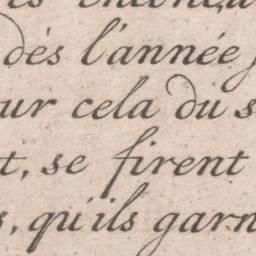 dés l'année
ur cela du s
t, se firent
s, qu'ils garn